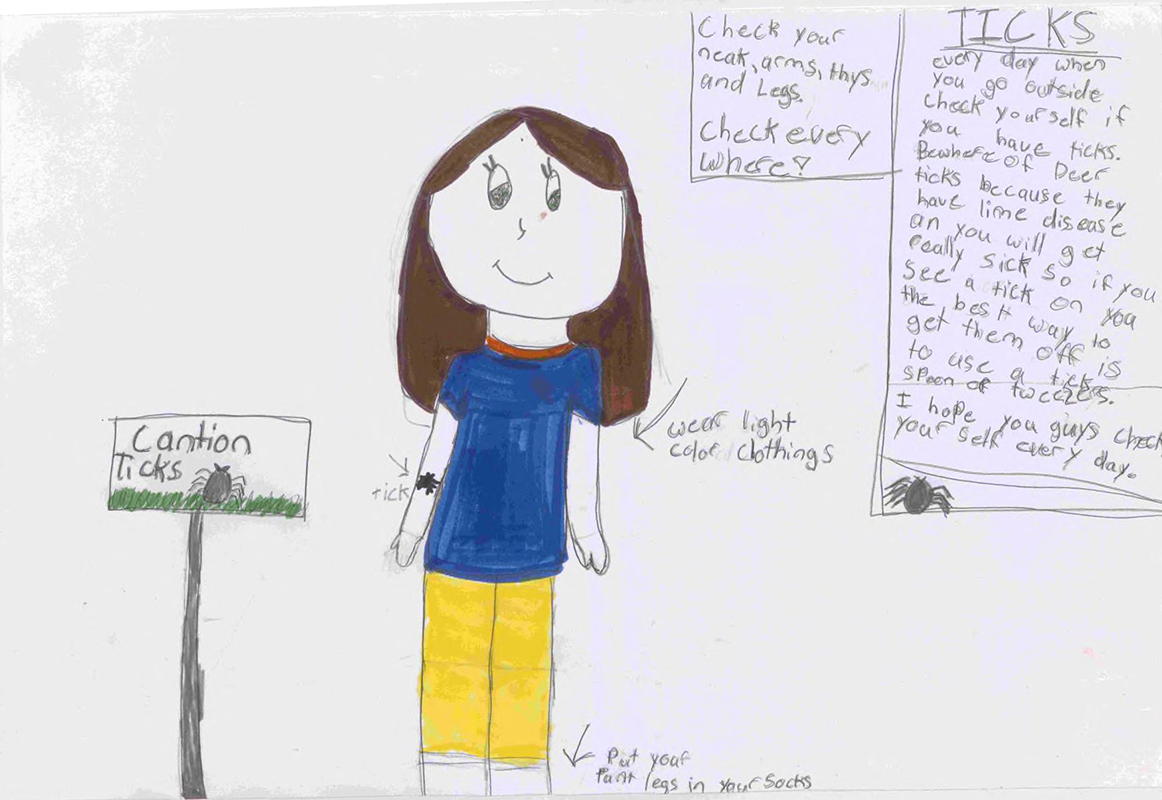 Check your
neak, arms, thys
and Legs.
Check every
where!
TICKS
every day when
you go outside
check yourself if
you have ticks.
Bewhere of Deer
ticks because they
have lime disease
an you will get
really sick so if you
see a tick on you
the best way to
get them off is
to use a tick
spoon or twezers.
I hope you guys check
your self every day.
wear light
color clothings
Cantion
Ticks
tick
Put your
Pant legs in your socks